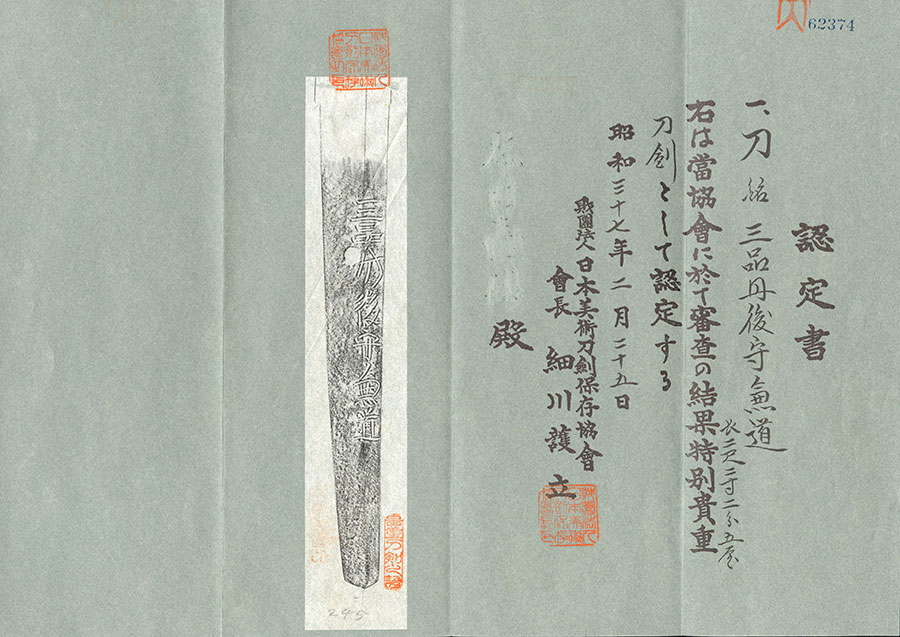 62374
認定書
一、刀 銘 三品丹後守兼道
長二尺三寸二分五厘
右は當協會に於て審査の結果特別貴重
刀劍として認定する
昭和三十七年二月二十五日
財團法人日本美術刀劍保存協會
會長 細川護立
殿
三品丹後守兼道
245